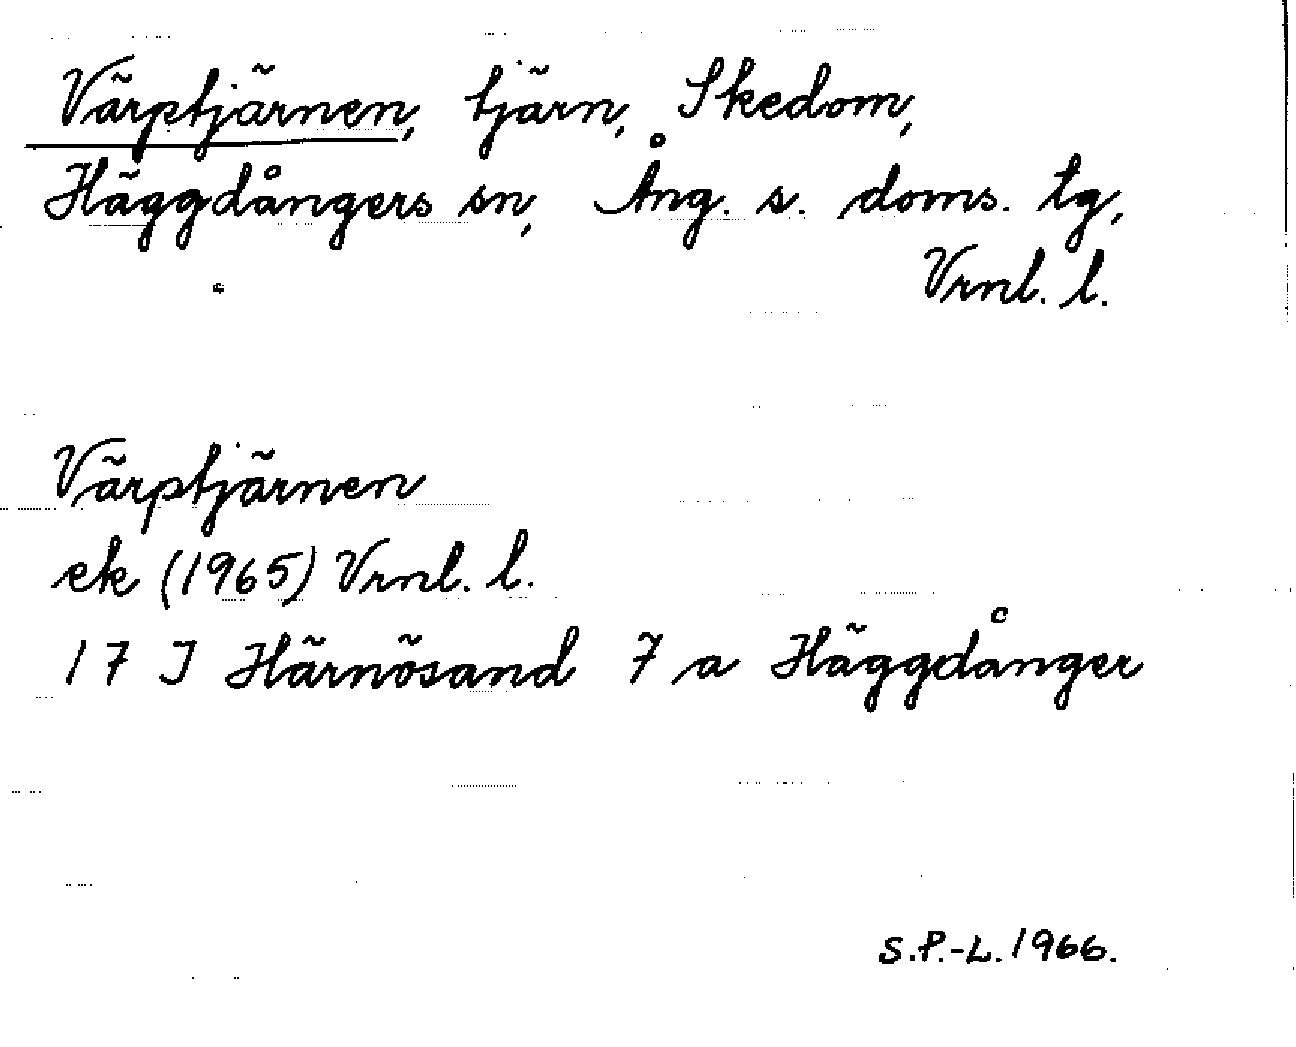 Värptjärnen, tjärn, Skedom,
Häggdångers sn, Ång. s. doms. tg,
Vrnl. l.
Värptjärnen
ek (1965) Vrnl. l.
17 J Härnösand 7 a Häggdånger
S.P.-L. 1966.